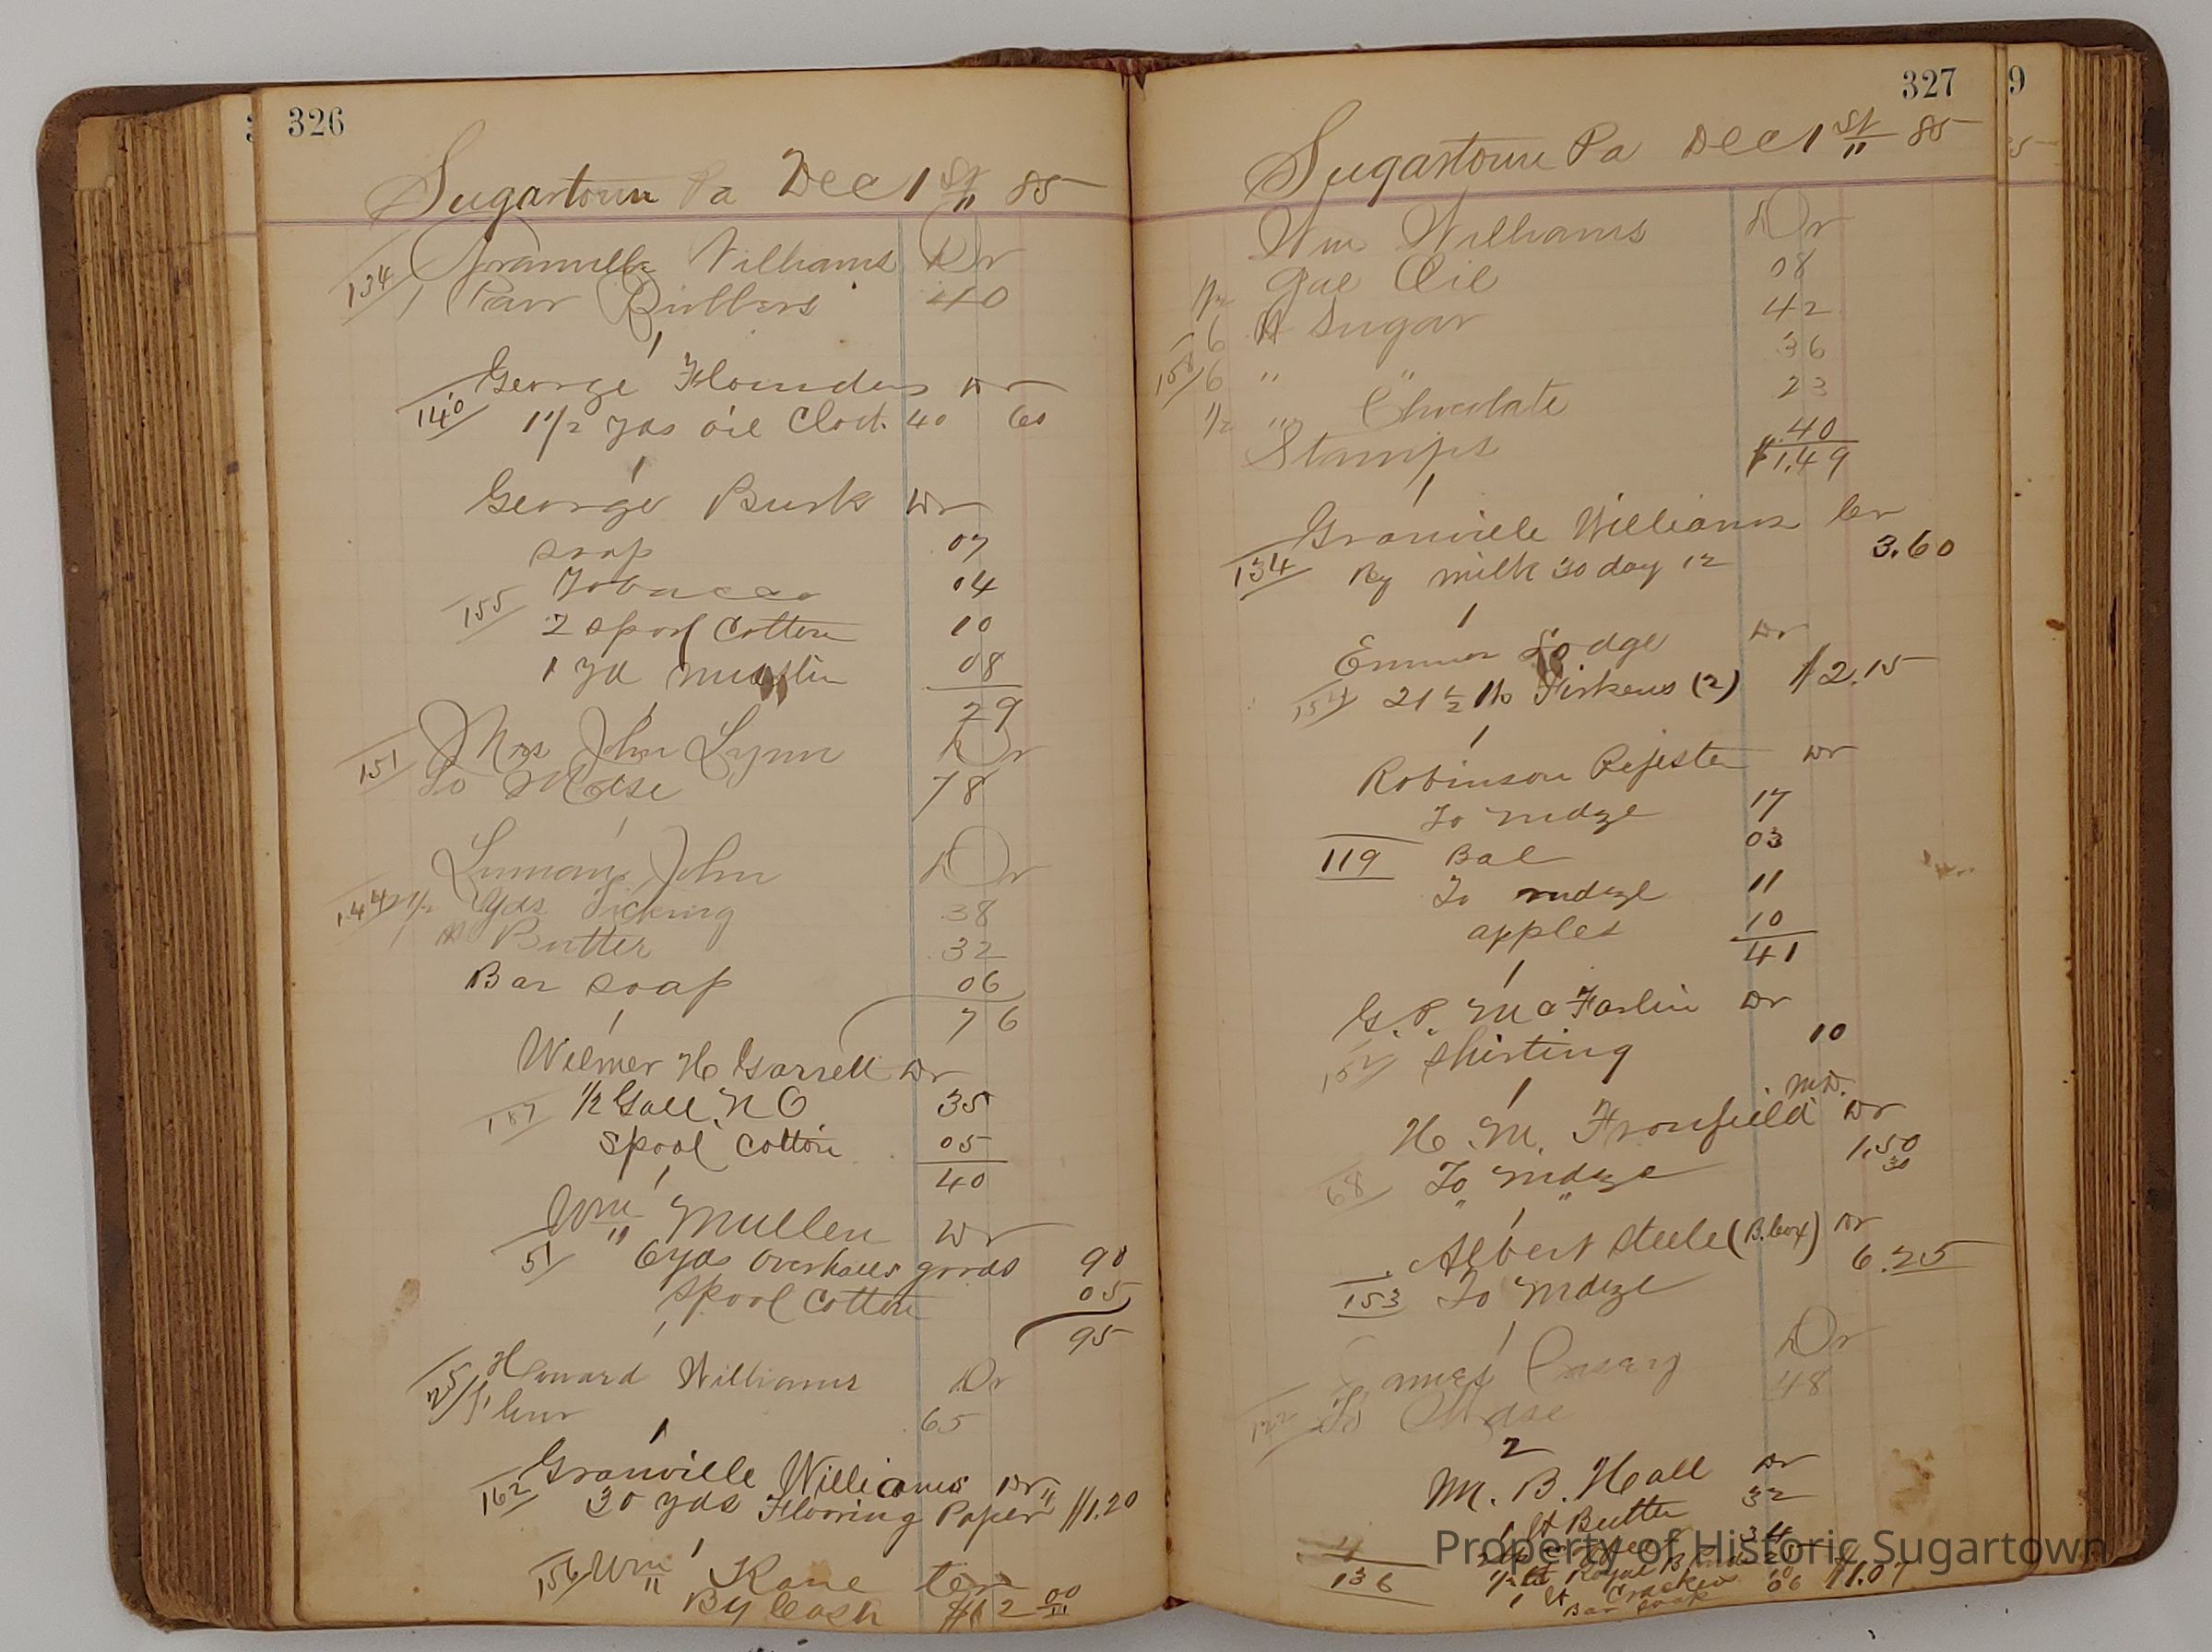 326
Sugartown Pa Dec 1st 85
134 Granville Williams Dr
1 Pair Rubbers 40
1
George Flounders Dr
140 1 1/2 yds oil Cloth 40 60
1
George Burk Dr
Soap 07
155 Tobacco 04
2 spool Cotton 10
1 yd muslin 08
29
151 Mrs John Lynn Dr
To Mdse 78
1
Luman John Dr
144 1/2 yds Ticking 38
1 lb Butter 32
Bar soap 06
76
1
Wilmer H Garrett Dr
157 1/2 Gall N O 35
Spool Cotton 05
40
1
Wm Mullen Dr
51 6 yds Overhauls goods 90
Spool Cotton 05
95
1
25 Howard Williams Dr
65
1
162 Granville Williams Dr
30 yds Flooring Paper $1.20
1
156 Wm Kane Cr
By Cash $12 00
327
Sugartown Pa Dec 1st 85
Wm Williams Dr
1/2 Gal Oil 08
6 lb Sugar 42
158 6 " " 36
1/2 " Chocolate 23
Stamps 40
$1.49
1
Granville Williams Cr
134 By milk 30 day 12 3.60
1
Lodge Dr
154 21 1/2 lb Firkens (2) $2.15
1
Robinson Dr
To mdze 17
119 Bal 03
To mdze 11
apples 10
41
1
G. P. McFarlin Dr
152 Shirting 10
1
H. M. Fronfield M.D. Dr
68 To mdze 1.50
" " 30
1
Albert Steele (B. Cox) Dr
153 To Mdze 6.25
1
James Casey Dr
122 To Mdse 48
2
M. B. Hall Dr
1 lb Butter 32
34
136 1/2 lb Royal B 25
1 lb Crackers 10
Bar soap 06 $1.07
Property of Historic Sugartown
9